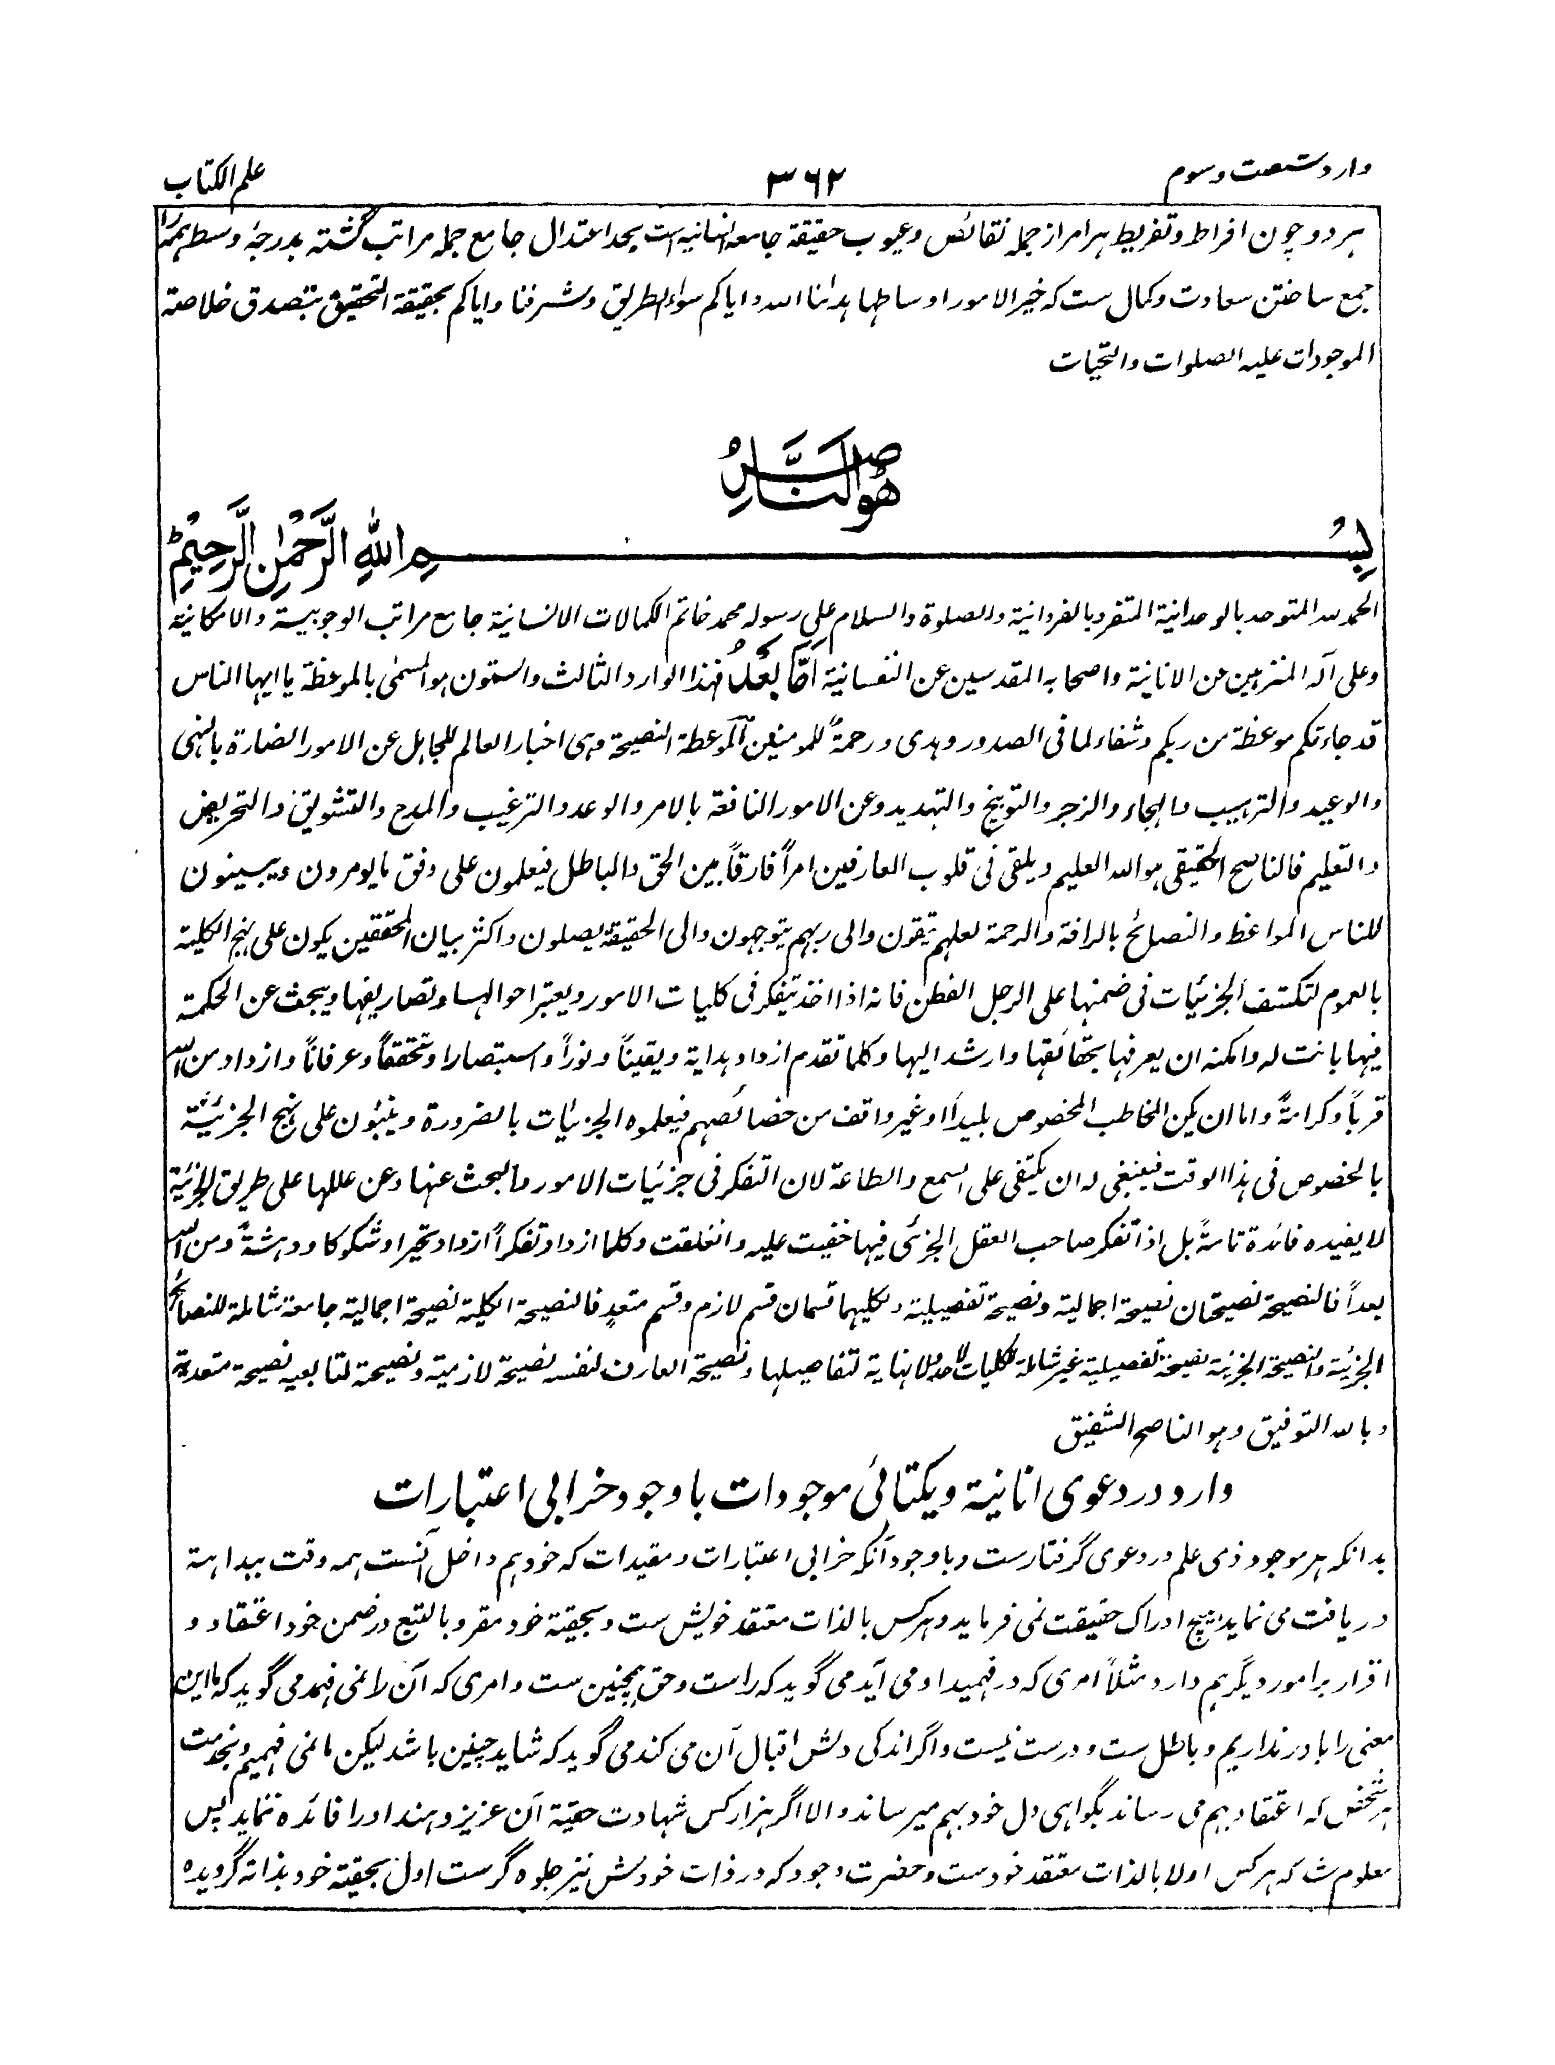 وارد شصت و سوم
۳۶۲
علم الکتاب
هر دو چون افراط و تفریط هر امر از جمله نقائص و عیوب حقیقة جامعه انسانیه است بحد اعتدال جامع جمله مراتب گشته بدرجهٔ وسط همه را
جمع ساختن سعادت و کمال ست که خیر الامور اوساطها هدانا الله و ایاکم سواء الطریق و شرفنا و ایاکم بحقیقة التحقیق بتصدق خلاصة
الموجودات علیه الصلوات والتحیات
هو الناصر
بسم الله الرحمن الرحیم
الحمد لله المتوحد بالوحدانیة المتفرد بالفردانیة والصلوة والسلام علی رسوله محمد خاتم الکمالات الانسانیة جامع مراتب الوجوبیة والامکانیة
وعلی آله المنزهین عن الانانیة واصحابه المقدسین عن النفسانیة اما بعد فهذا الوارد الثالث والستون هو المسمی بالموعظة یا ایها الناس
قد جاءتکم موعظة من ربکم وشفاء لما فی الصدور وهدی ورحمة للمومنین الموعظة النصیحة وهی اخبار العالم للجاهل عن الامور الضارة بالنهی
والوعید والترهیب والهجاء والزجر والتوبیخ والتهدید وعن الامور النافعة بالامر والوعد والترغیب والمدح والتشویق والتحریض
والتعلیم فالناصح الحقیقی هو الله العلیم ویلقی فی قلوب العارفین امراً فارقاً بین الحق والباطل فیعلمون علی وفق ما یومرون ویبینون
للناس المواعظ والنصائح بالرافة والرحمة لعلهم یتقون والی ربهم یتوجهون والی الحقیقة یصلون واکثر بیان المحققین یکون علی نهج الکلیة
بالعموم لتکشف الجزئیات فی ضمنها علی الرجل الفطن فانه اذا اخذ یتفکر فی کلیات الامور ویعتبر احوالها وتصاریفها ویبحث عن الحکمة
فیها بانت له وامکنه ان یعرفها بحقائقها وارشد الیها وکلما تقدم ازداد هدایة ویقیناً ونوراً واستبصارا وتحققاً وعرفاناً وازداد من الله
قرباً وکرامةً واما ان یکن المخاطب المخصوص بلیداً او غیر واقف من خصائصهم فیعلموه الجزئیات بالضرورة وینبئون علی نهج الجزئیة
بالخصوص فی هذا الوقت فینبغی له ان یکتفی علی السمع والطاعة لان التفکر فی جزئیات الامور والبحث عنها وعن عللها علی طریق الجزئیة
لا یفیده فائدة تامةً بل اذا تفکر صاحب العقل الجزئی فیها خفیت علیه وانغلقت وکلما ازداد تفکراً ازداد تحیرا وشکوکا ودهشةً ومن الله
بعداً فالنصیحة نصیحتان نصیحة اجمالیة ونصیحة تفصیلیة وکلیهما قسمان قسم لازم وقسم متعدٍ فالنصیحة الکلیة نصیحة اجمالیة جامعة شاملة للنصائح
الجزئیة والنصیحة الجزئیة نصیحة تفصیلیة غیر شاملة للکلیات لا حد ولا نهایة لتفاصیلها ونصیحة العارف لنفسه نصیحة لازمیة ونصیحة لتابعیه نصیحة متعدیة
وبالله التوفیق وهو الناصح الشفیق
وارد در دعوی انانیة و یکتائی موجودات با وجود خرابی اعتبارات
بدانکه هر موجود ذی علم در دعوی گرفتارست و باوجود آنکه خرابی اعتبارات و مقیدات که خود هم داخل آنست همه وقت ببداهة
دریافت می نماید هیچ ادراک حقیقت نمی فرماید و هر کس بالذات معتقد خویش ست و بحقیقة خود مقر و بالتبع در ضمن خود اعتقاد و
اقرار بر امور دیگر هم دارد مثلاً امری که در فهمید او می آید می گوید که راست و حق همچنین ست و امری که آن را نمی فهمد می گوید که ما این
معنی را باور نداریم و باطل ست و درست نیست و اگر اندکی دلش اقبال آن می کند می گوید که شاید چنین باشد لیکن ما نمی فهمیم و بخدمت
هر شخص که اعتقاد بهم می رساند بگواهی دل خود بهم میرساند والا اگر هزار کس شهادت حقیة آن عزیز دهند او را فائده ننماید پس
معلوم شد که هر کس اولا بالذات معتقد خودست و حضرت وجود که در ذات خودش نیز جلوه گرست اول بحقیة خود بذاته گرویده